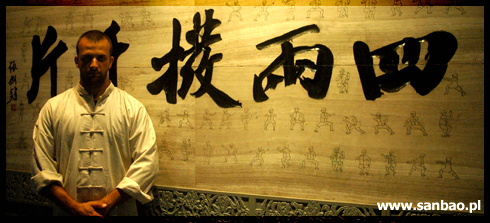 四兩撥千斤
www.sanbao.pl